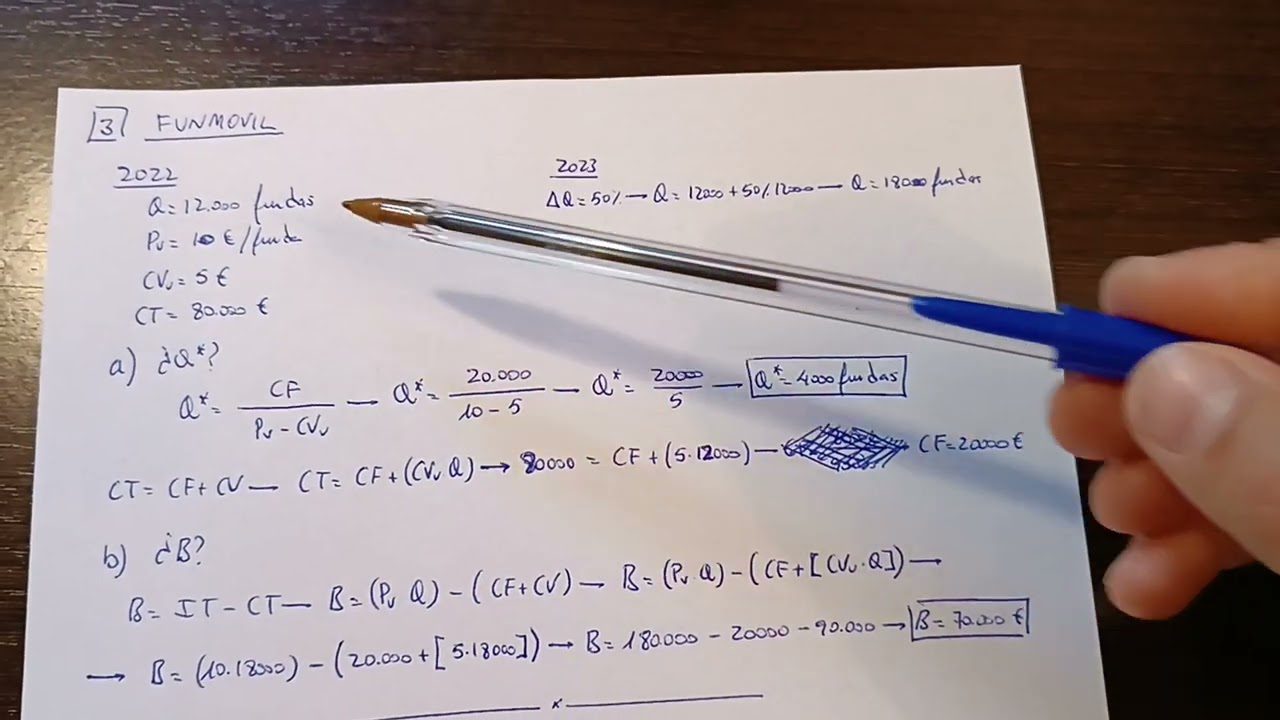 3 FUNMOVIL
2022
Q = 12.000 fundas
Pv = 10 €/funda
CVu = 5 €
CT = 80.000 €
2023
ΔQ = 50% — Q = 12000 + 50% 12000 — Q = 18000 fundas
a) ¿Q*?
Q* = CF / (Pv - CVu) — Q* = 20.000 / (10 - 5) — Q* = 20000 / 5 — Q* = 4000 fundas
CT = CF + CV — CT = CF + (CVu Q) → 80000 = CF + (5·12000) — CF = 20000 €
b) ¿B?
B = IT - CT — B = (Pv Q) - (CF + CV) — B = (Pv·Q) - (CF + [CVu·Q]) —
→ B = (10·18000) - (20.000 + [5·18000]) → B = 180.000 - 20000 - 90.000 → B = 70.000 €